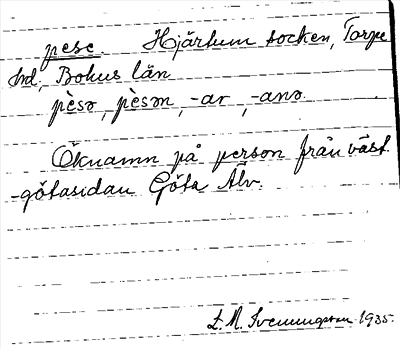 pese. Hjärtum socken, Torpe
hd, Bohus län
pèsə, pèsən, -ar, -anə.
Öknamn på person från väst-
götasidan Göta Älv.
L. M. Svenungsson 1935.